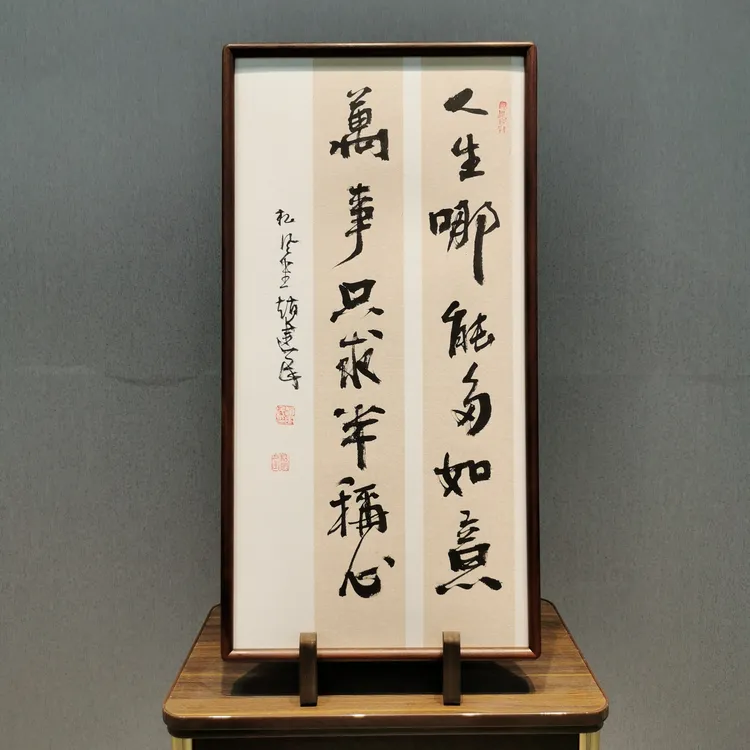 人生哪能多如意
萬事只求半稱心
松風堂趙建民